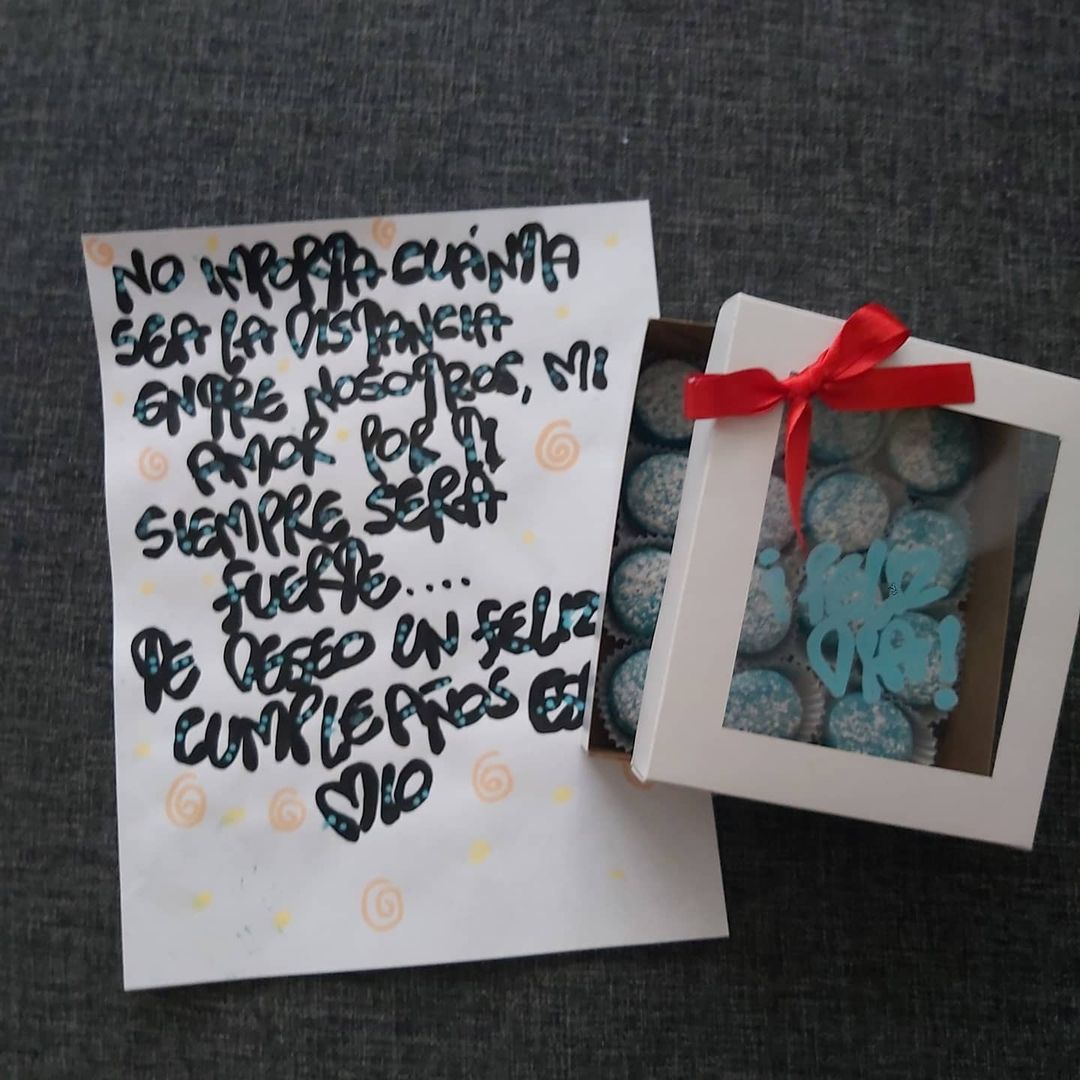 NO IMPORTA CUÁNTA
SEA LA DISTANCIA
ENTRE NOSOTROS, MI
AMOR POR TI
SIEMPRE SERA
FUERTE....
TE DESEO UN FELIZ
CUMPLEAÑOS
MIO
¡FELIZ
DIA!